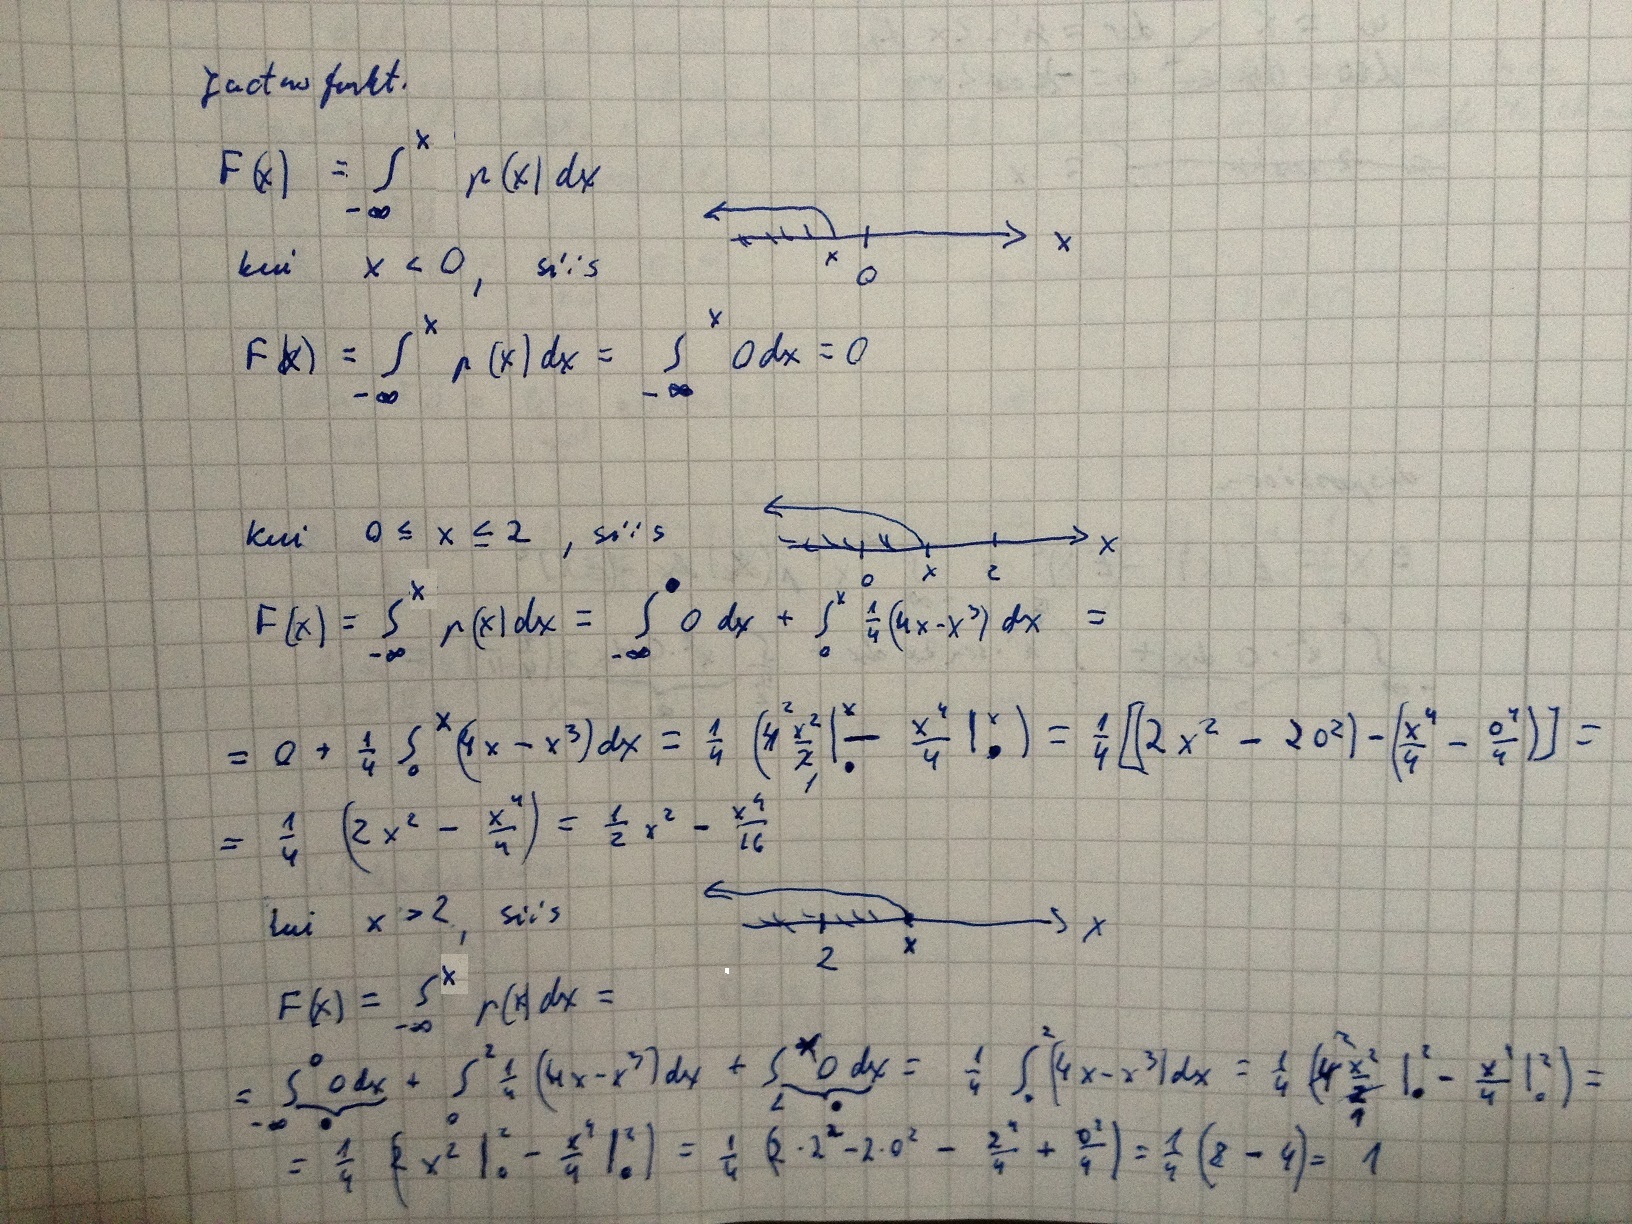 Jaotusfunkt.
F(x) = ∫_{-∞}^{x} p(x) dx
kui x < 0, siis
x 0 x
F(x) = ∫_{-∞}^{x} p(x) dx = ∫_{-∞}^{x} 0 dx = 0
kui 0 ≤ x ≤ 2, siis
0 x 2 x
F(x) = ∫_{-∞}^{x} p(x) dx = ∫_{-∞}^{0} 0 dx + ∫_{0}^{x} 1/4 (4x - x^3) dx =
= 0 + 1/4 ∫_{0}^{x} (4x - x^3) dx = 1/4 (4 x^2/2 |_0^x - x^4/4 |_0^x) = 1/4 [(2x^2 - 2 0^2) - (x^4/4 - 0^4/4)] =
= 1/4 (2x^2 - x^4/4) = 1/2 x^2 - x^4/16
kui x > 2, siis
2 x x
F(x) = ∫_{-∞}^{x} p(x) dx =
= ∫_{-∞}^{0} 0 dx + ∫_{0}^{2} 1/4 (4x - x^3) dx + ∫_{2}^{x} 0 dx = 1/4 ∫_{0}^{2} (4x - x^3) dx = 1/4 (4 x^2/2 |_0^2 - x^4/4 |_0^2) =
= 1/4 (2 x^2 |_0^2 - x^4/4 |_0^2) = 1/4 (2 · 2^2 - 2 · 0^2 - 2^4/4 + 0^2/4) = 1/4 (8 - 4) = 1